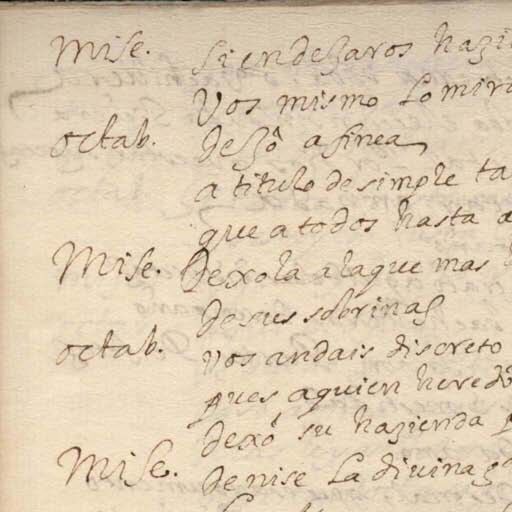 Mise. si en dexaros hazi
vos mismo lo mira
octab. dexô a finea
a titulo de simple ta
que a todos hasta a
Mise. Dexola a la que mas
de sus sobrinas
octab. vos andais discreto
pues a quien heredô
dexó su hazienda p
Mise. de nise la divina g